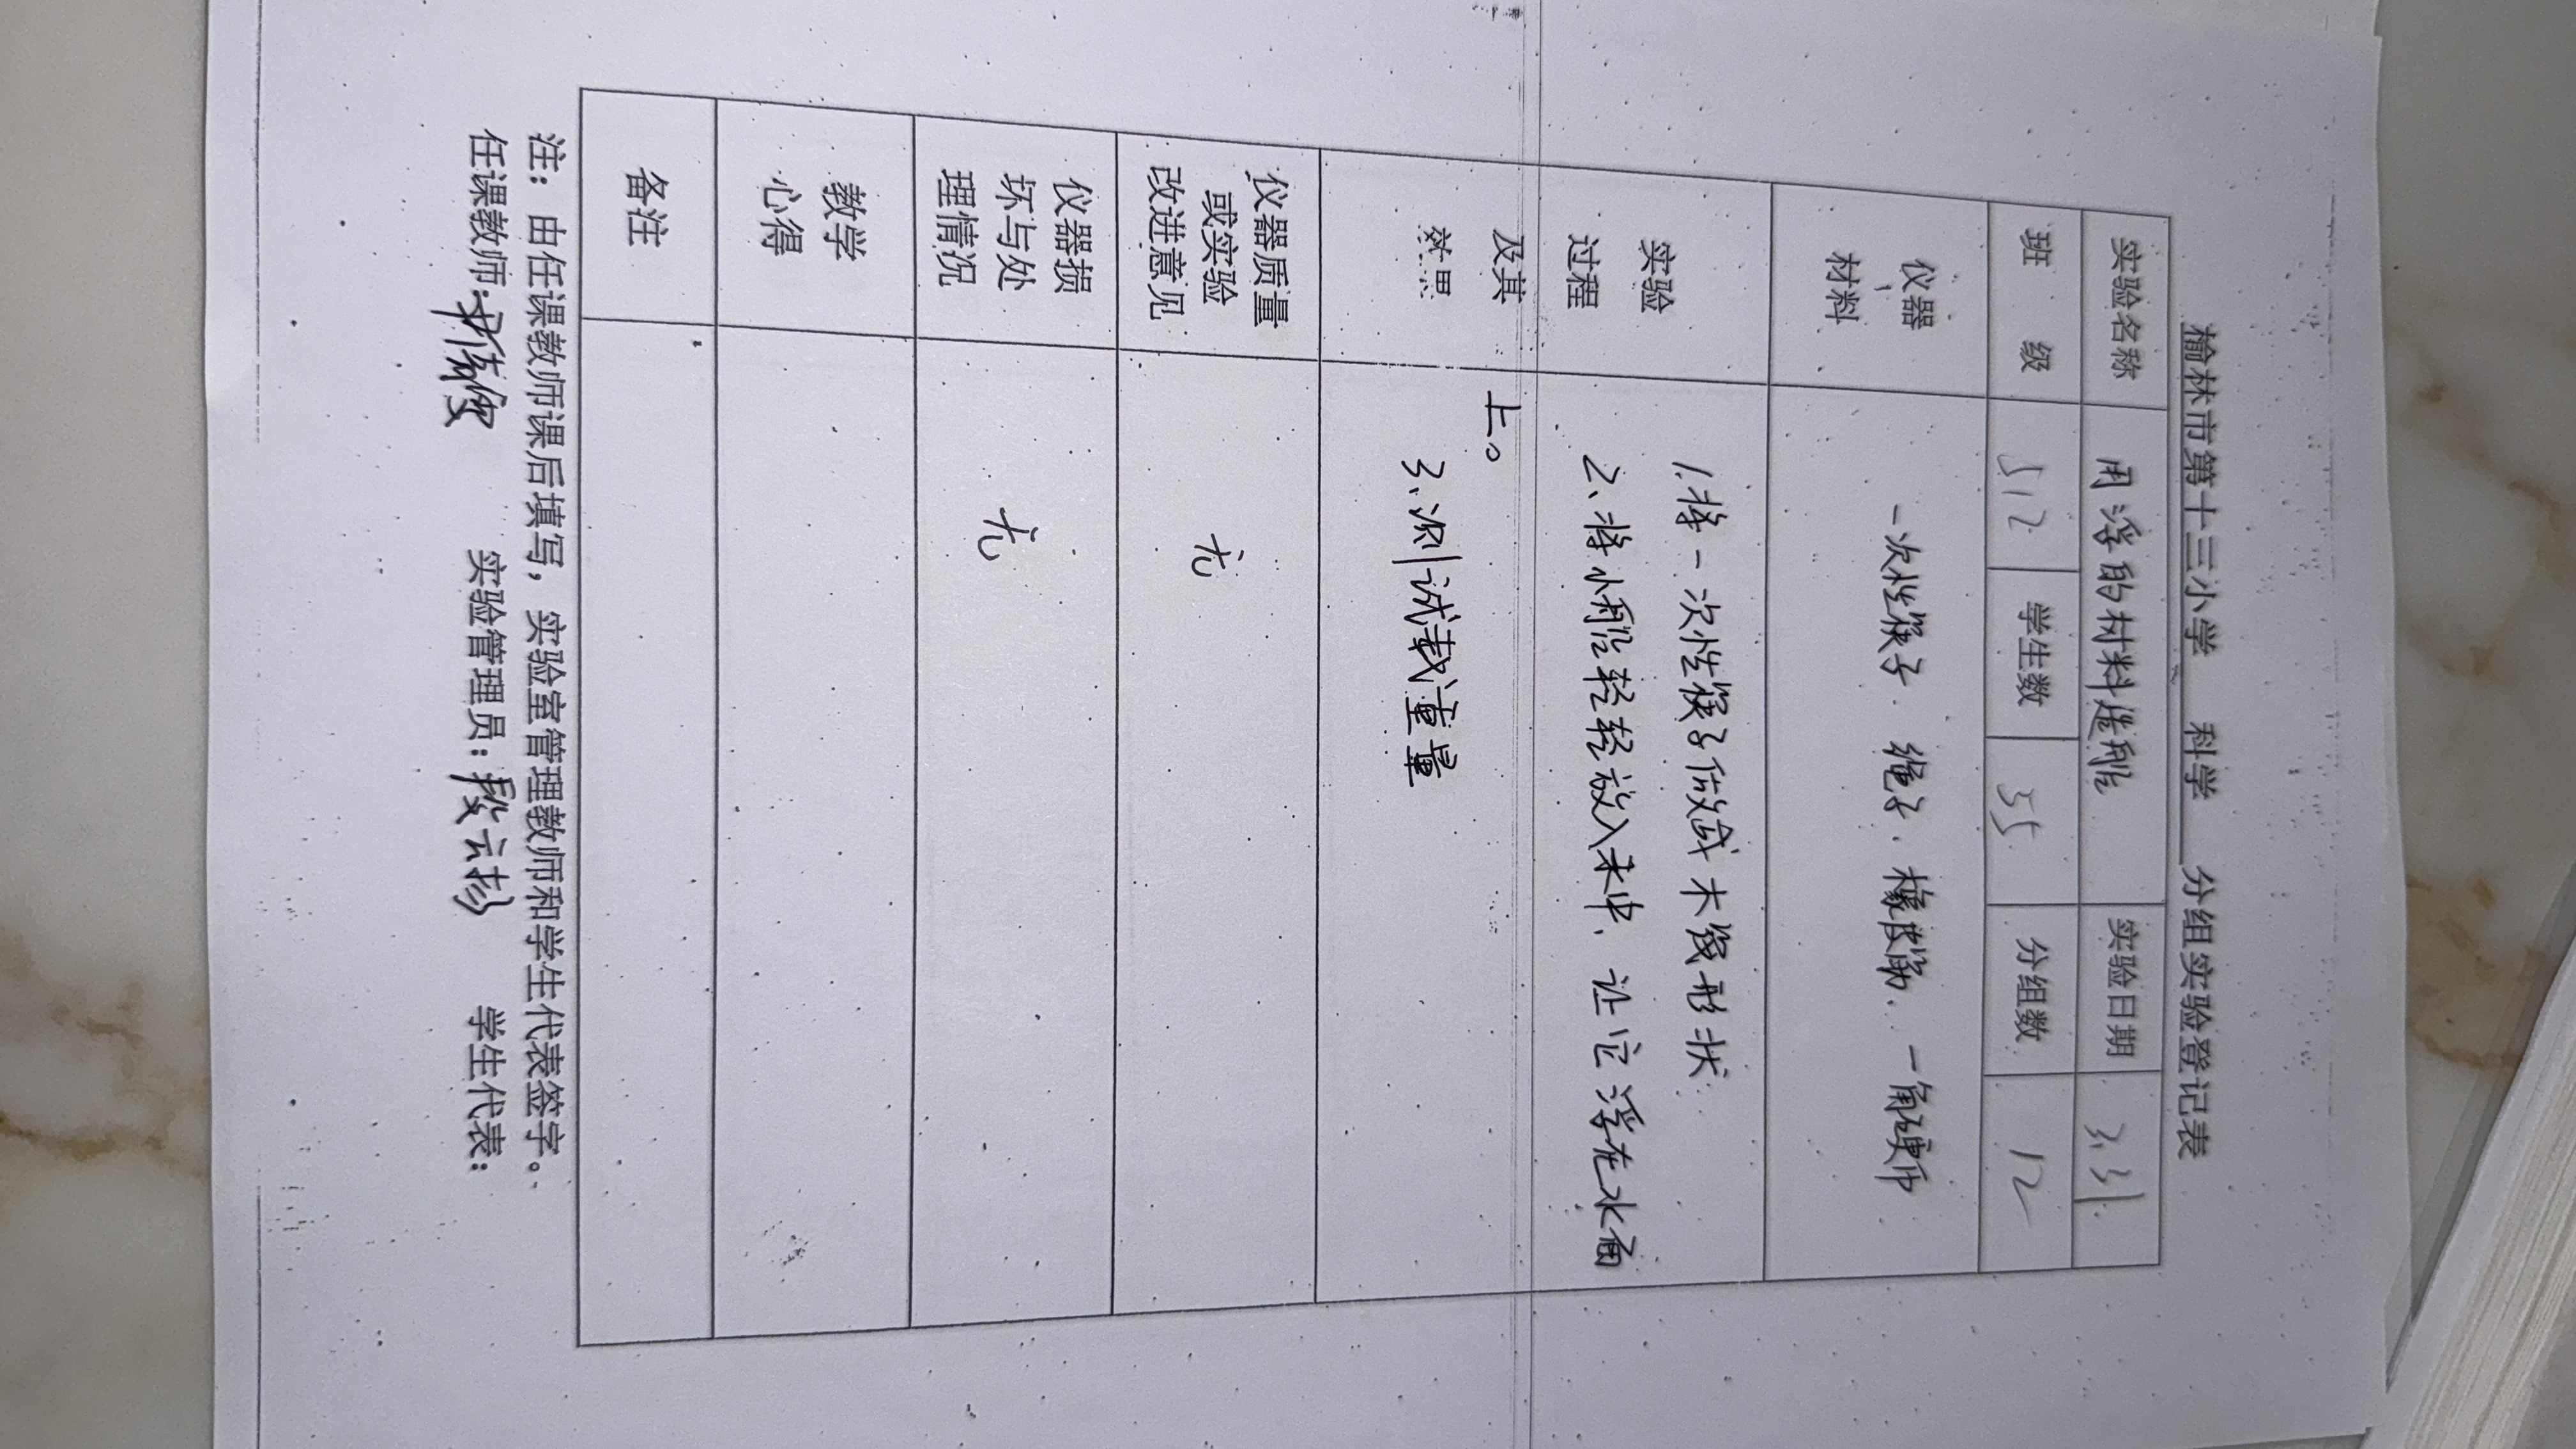 榆林市第十三小学 科学 分组实验登记表
实验名称 用浮的材料造船 实验日期 3.31
班 级 512 学生数 55 分组数 12
仪器、材料 一次性筷子、绳子、橡皮筋、一角硬币
实验过程及其效果
1.将一次性筷子做成木筏形状
2、将小船轻轻放入水中、让它浮在水面
上。
3、测试载重量
仪器质量或实验改进意见 无
仪器损坏与处理情况 无
教学心得
备注
注：由任课教师课后填写，实验室管理教师和学生代表签字。
任课教师： 实验管理员：段云杉 学生代表：